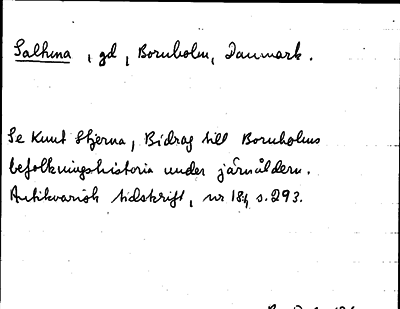 Salhena, gd, Bornholm, Danmark.
Se Knut Stjerna, Bidrag till Bornholms
befolkningshistoria under järnåldern.
Antikvarisk tidskrift, nr 18:1, s. 293.